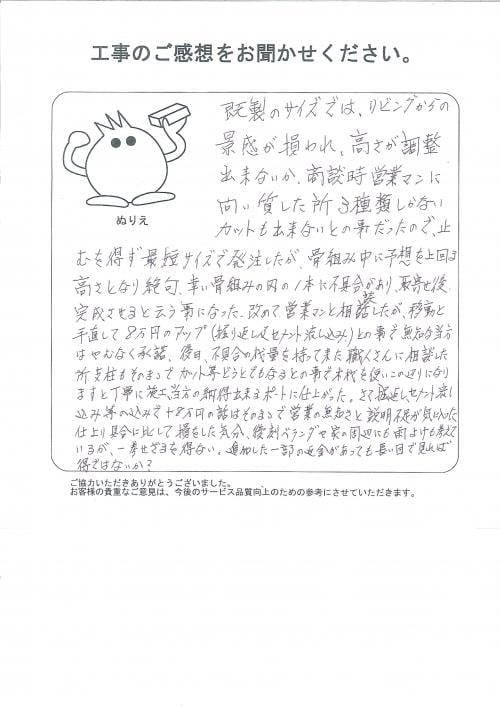 工事のご感想をお聞かせください。
ぬりえ
既製のサイズでは、リビングからの
景感が損われ、高さが調整
出来ないか、商談時営業マンに
向い質した所3種類しかない
カットも出来ないとの事だったので、止
むを得ず最短サイズで発注したが、骨組み中に予想を上回る
高さとなり絶句、幸い骨組みの内の1本に不具合があり、取寄せ後
完成させると云う事になった。改めて営業マンと相談したが、移動と
手直しで8万円のアップ(掘り返しセメント流し込み)との事で無知な当方
はやむなく承諾、後日、不具合の代量を持って来た職人さんに相談した
所支柱もそのままでカット等どうとでもなるとの事で木代を使いこの辺りになり
ますと丁寧に施工当方の納得出来るポートに仕上がった。さて掘返しセメント流し
込み等の込みで+8万円の話はそのままで営業の無知さと説明不足が気に入った
仕上り具合に比して損をした気分、後刻ベランダや家の周辺にも雨よけも考えて
いるが、一考せざるを得ない。追加した一部の返金があっても長い目で見れば
得ではないか?
ご協力いただきありがとうございました。
お客様の貴重なご意見は、今後のサービス品質向上のための参考にさせていただきます。